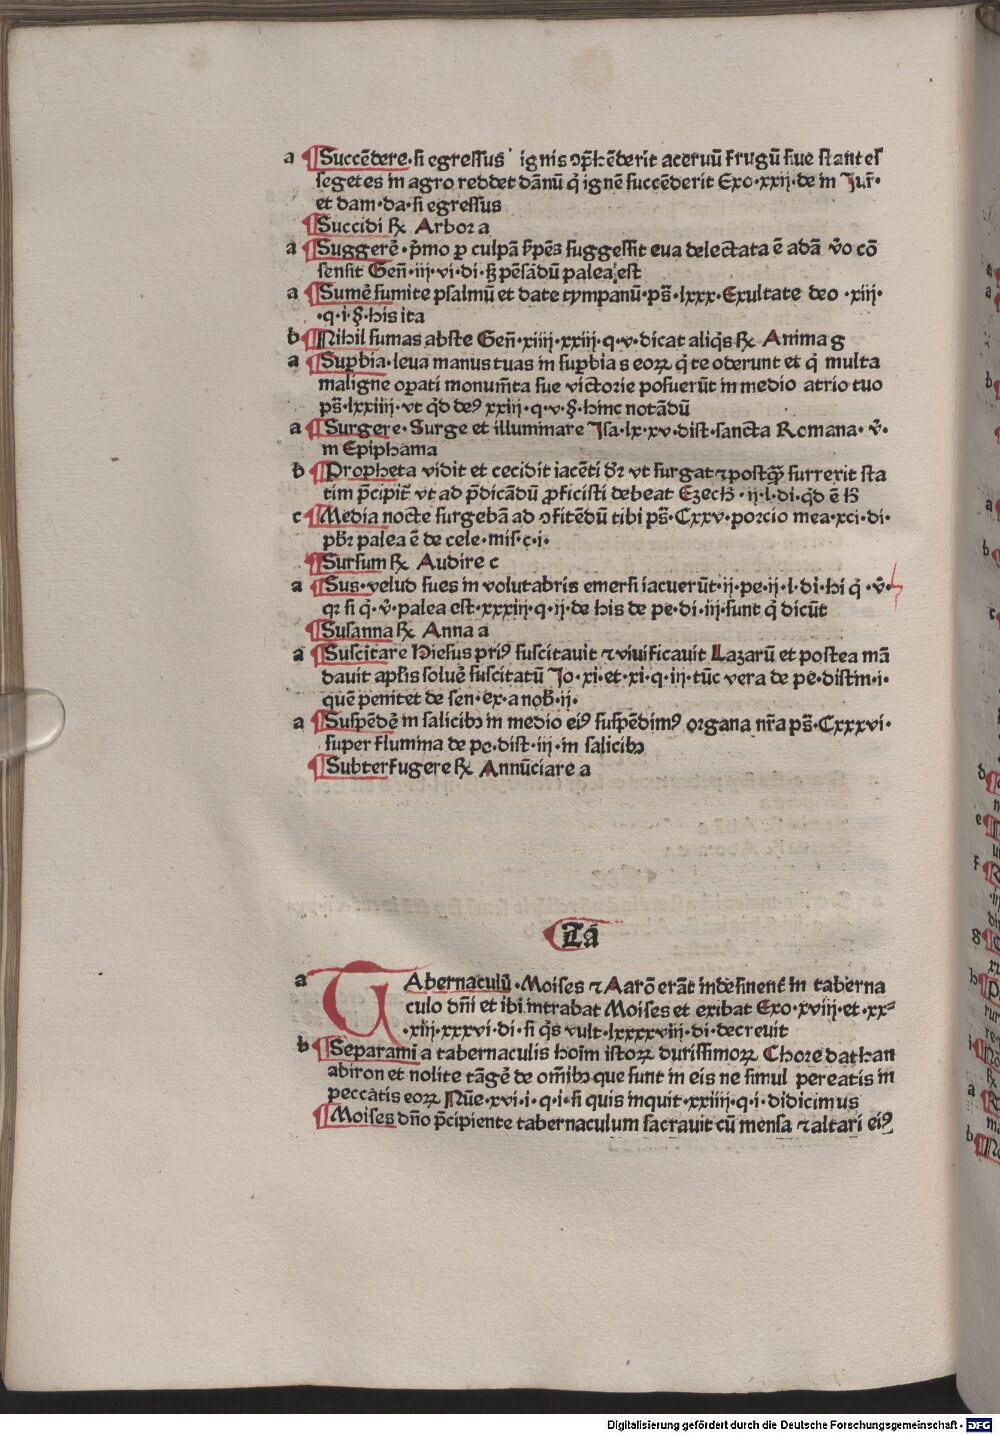 a ¶Succēdere·si egressus ignis ↄp̄hēderit aceruū frugū siue stantes
segetes in agro reddet dānū q̄ ignē succēderit Exo·xxij·de in Jur̄·
et dam·da·si egressus
¶Succidi ℞ Arbor a
a ¶Suggerē·p̄mo ꝑ culpā s̄pēs suggessit eua delectata ē adā v̄o cō
sensit Gen̄·iij·vi·di·sꝫ pēsādū palea est
a ¶Sumē sumite psalmū et date tympanū·ps̄·lxxx·Exultate deo ·xiij·
·q·i·§·his ita
b ¶Nihil sumas abste Gen̄·xiiij·xxiij·q·v·dicat aliq̄s ℞ Anima g
a ¶Suꝑbia·leua manus tuas in suꝑbia s eoꝝ q̄ te oderunt et q̄ multa
maligne oꝑati monum̄ta sue victorie posuerūt in medio atrio tuo
ps̄·lxxiiij·vt qd̄ deꝰ xxiij·q·v·§·hinc notādū
a ¶Surgere·Surge et illuminare Jsa·lx·xv·dist·sancta Romana·v̄·
in Epiphania
b ¶Propheta vidit et cecidit iacēti dr̄ vt surgat ⁊ postqꝫ̄ surrexit sta
tim p̄cipit̄ vt ad p̄dicādū ꝓficisti debeat Ezech̄·ij·l·di·qd̄ ē h̄
c ¶Media nocte surgebā ad ↄfitēdū tibi ps̄·Cxxv·porcio mea·xci·di·
pbr̄ palea ē de cele·mis·c·i·
¶Sursum ℞ Audire c
a ¶Sus·velud sues in volutabris emersi iacuerūt·ij·pe·ij·l·di·hi q̄·v̄·
qꝛ si q̄·v̄·palea est·xxxiij·q·ij·de his de pe·di·iij·sunt q̄ dicūt
¶Susanna ℞ Anna a
a ¶Suscitare Hiesus priꝰ suscitauit ⁊ viuificauit Lazarū et postea mā
dauit apl̄is soluē suscitatū Jo·xi·et·xi·q·iij·tūc vera de pe·distin·i·
quē penitet de sen·ex·a nob̄·ij·
a ¶Suspēdē in salicibꝫ in medio eiꝰ suspēdimꝰ organa nr̄a ps̄·Cxxxvi·
super flumina de pe·dist·iij·in salicibꝫ
¶Subterfugere ℞ Annūciare a
¶Ta
a TAbernaculū·Moises ⁊ Aarō erāt indesinent̄ in taberna
culo dn̄i et ibi intrabat Moises et exibat Exo·xviij·et·xx⸗
·xiij·xxxvi·di·si q̄s vult·lxxxxviij·di·decreuit
b ¶Separami a tabernaculis hoīm istoꝝ durissimoꝝ Chore dathan
abiron et nolite tāgē de om̄ibꝫ que sunt in eis ne simul pereatis in
peccatis eoꝝ Nūe·xvi·i·q·i·si quis inquit·xxiiij·q·i·didicimus
¶Moises dn̄o p̄cipiente tabernaculum sacrauit cū mensa ⁊ altari eiꝰ
Digitalisierung gefördert durch die Deutsche Forschungsgemeinschaft · DFG